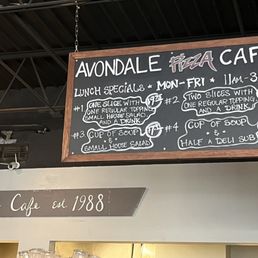 AVONDALE PIZZA CAF
LUNCH SPECIALS * MON-FRI * 11AM-3
#1 ONE SLICE WITH
ONE REGULAR TOPPING
SMALL HOUSE SALAD
AND A DRINK
#2 TWO SLICES WITH
ONE REGULAR TOPPING
AND A DRINK
#3 CUP OF SOUP
&
SMALL HOUSE SALAD
#4 CUP OF SOUP
&
HALF A DELI SUB
Cafe est 1988